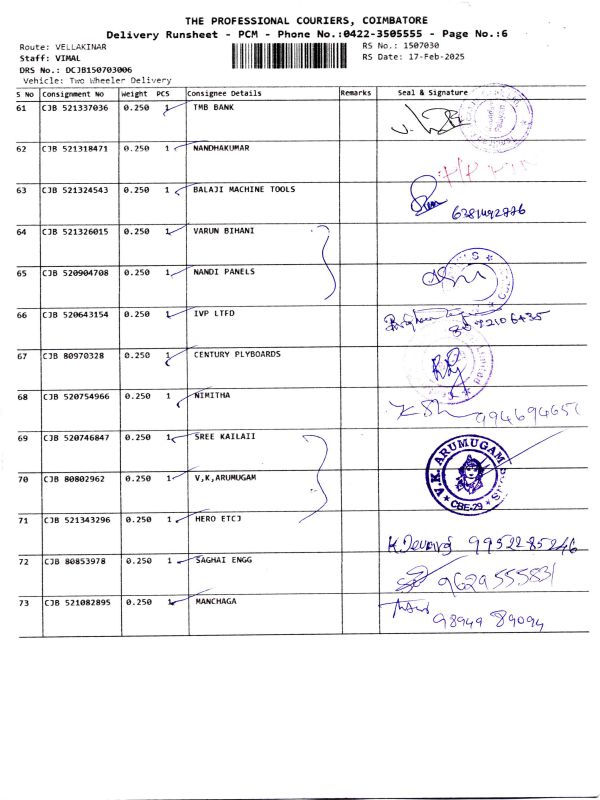 THE PROFESSIONAL COURIERS, COIMBATORE
Delivery Runsheet - PCM - Phone No.:0422-3505555 - Page No.:6
Route: VELLAKINAR RS No.: 1507030
Staff: VIMAL RS Date: 17-Feb-2025
DRS No.: DCJB150703006
Vehicle: Two Wheeler Delivery
S No Consignment No Weight PCS Consignee Details Remarks Seal & Signature
61 CJB 521337036 0.250 1 TMB BANK
62 CJB 521318471 0.250 1 NANDHAKUMAR
63 CJB 521324543 0.250 1 BALAJI MACHINE TOOLS
6381492876
64 CJB 521326015 0.250 1 VARUN BIHANI
65 CJB 520904708 0.250 1 NANDI PANELS
66 CJB 520643154 0.250 1 IVP LTFD
8092106435
67 CJB 80970328 0.250 1 CENTURY PLYBOARDS
68 CJB 520754966 0.250 1 NIMITHA
69 CJB 520746847 0.250 1 SREE KAILAII
70 CJB 80802962 0.250 1 V,K,ARUMUGAM
V.K. ARUMUGAM SONS
CBE-29
71 CJB 521343296 0.250 1 HERO ETCJ
K.Devaraj 9952285246
72 CJB 80853978 0.250 1 SAGHAI ENGG
9629555831
73 CJB 521082895 0.250 1 MANCHAGA
98949 89094